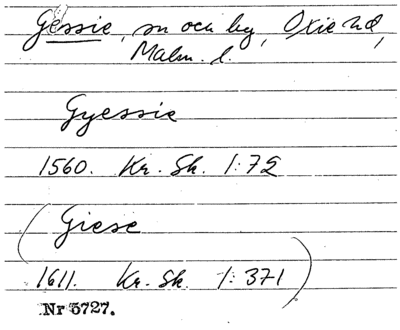 Gessie, sn och by, Oxie hd,
Malm. l.
Gyessie
1560. Kr. Sk. 1:72
(Giese
1611. Kr. Sk. 1:371)
Nr 5727.